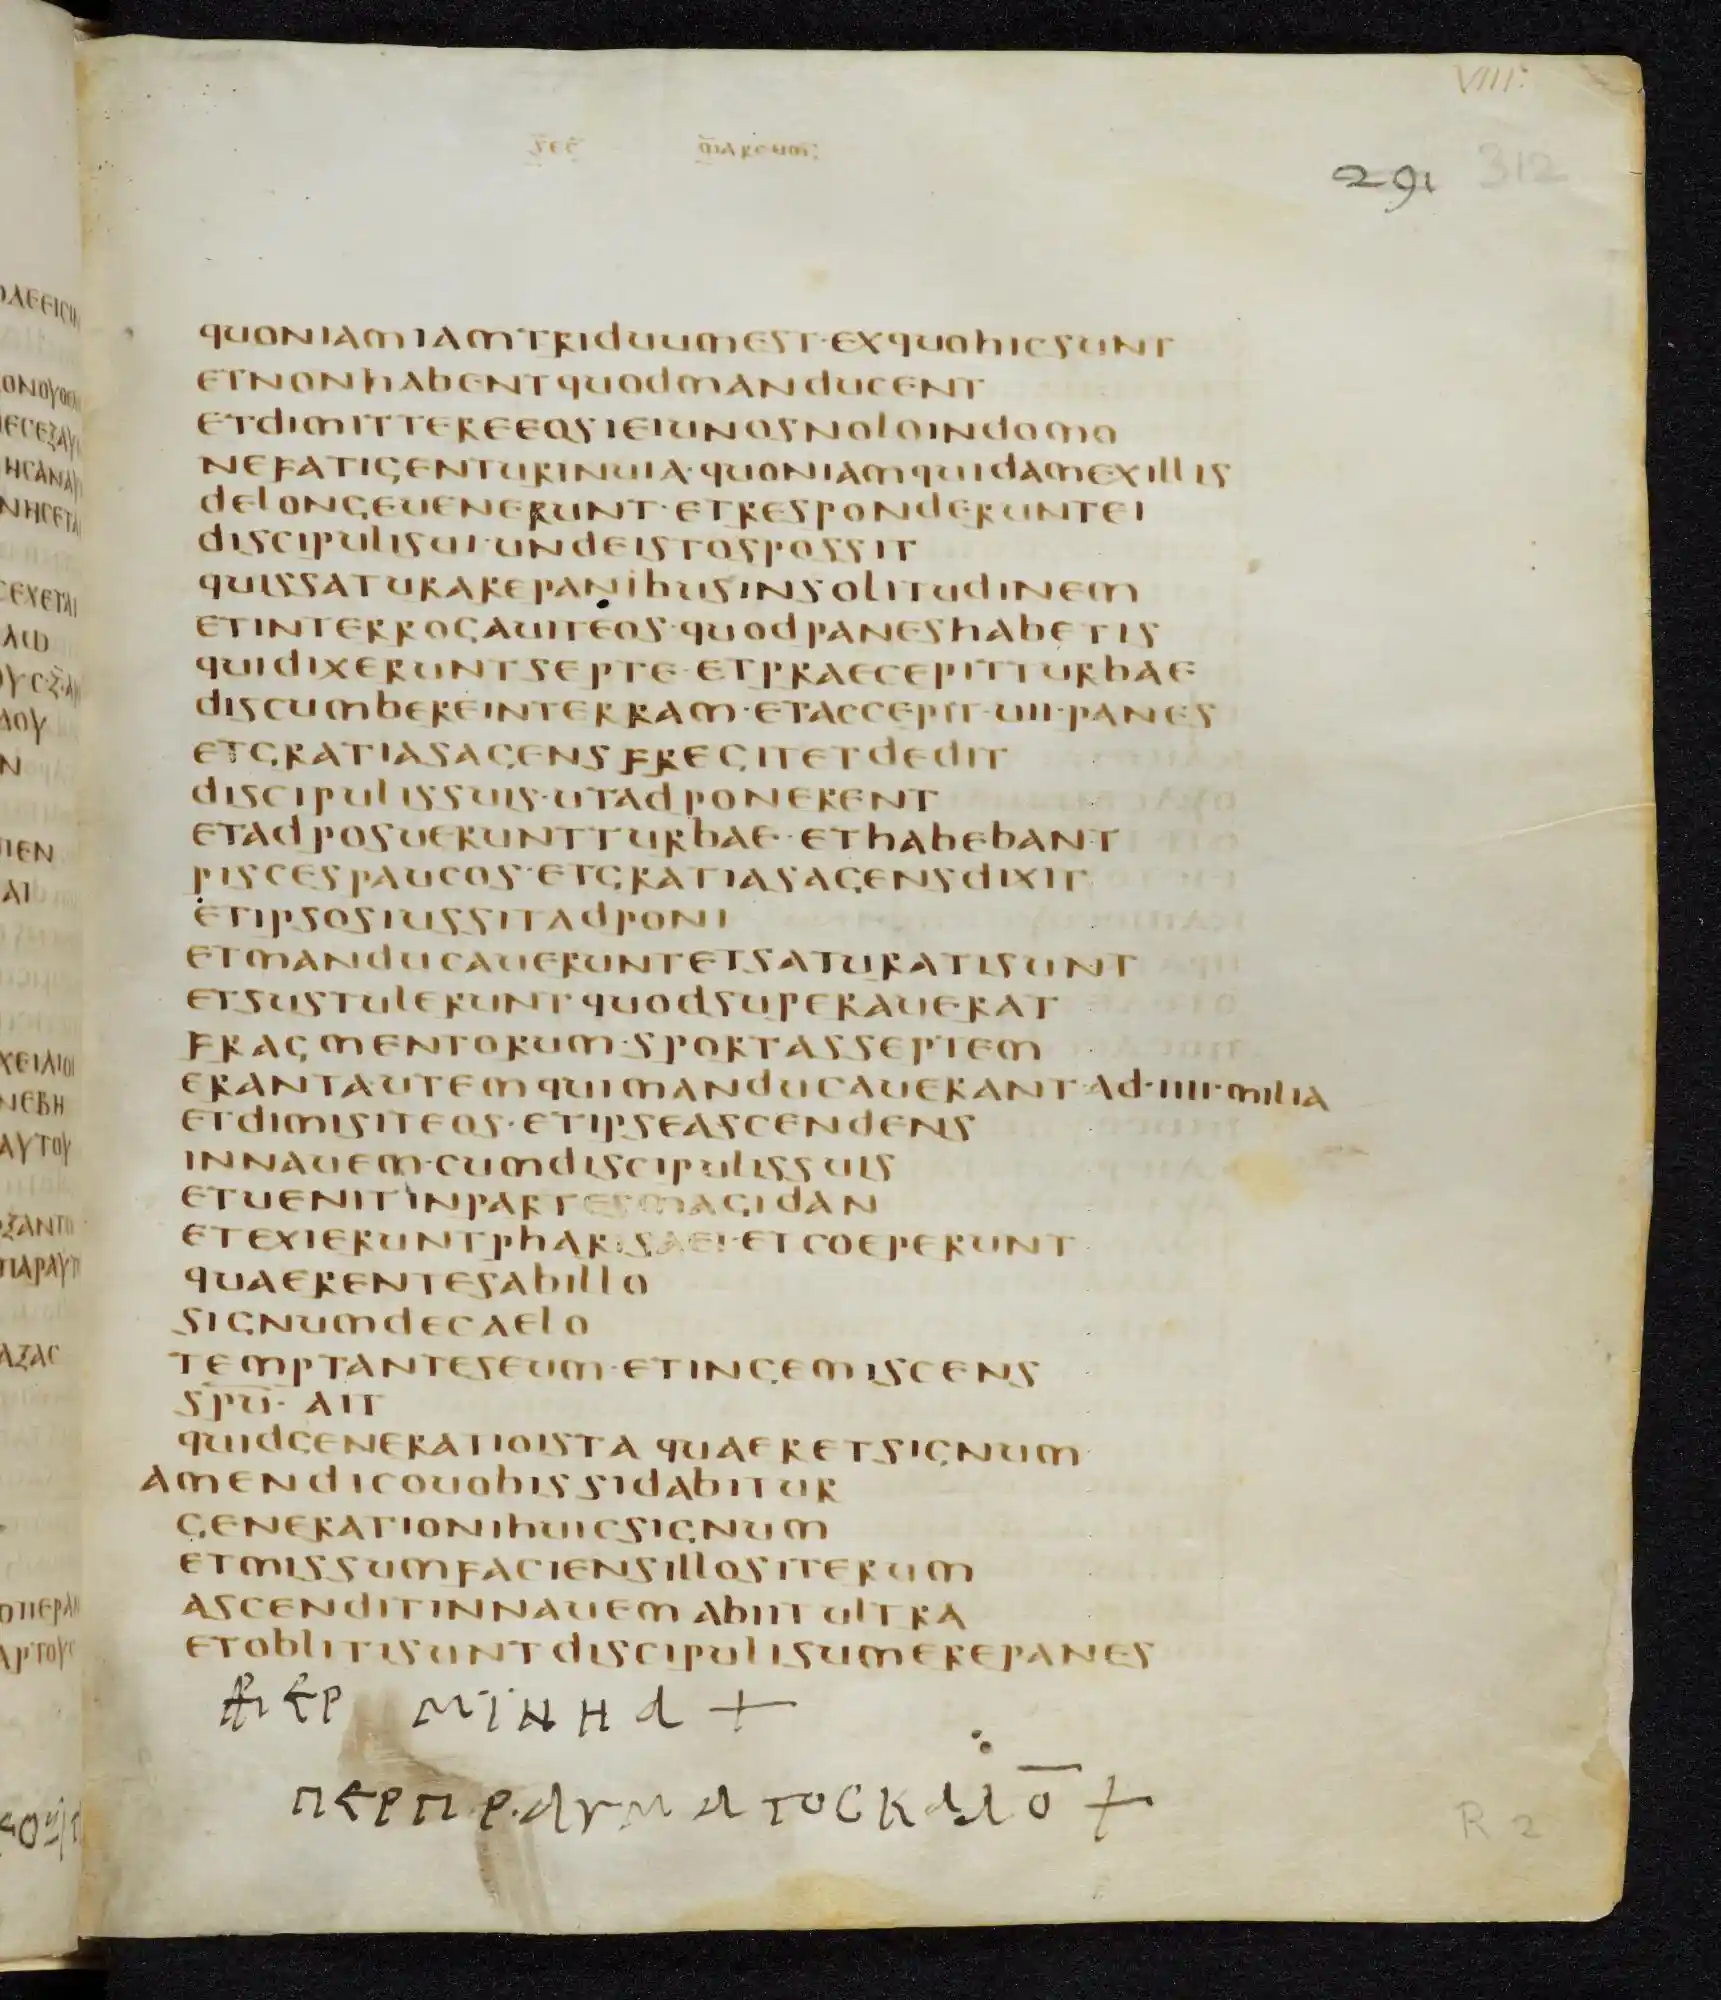 VIII:
sec marcum:
291 312
quoniam iam triduum est· ex quo hic sunt
et non habent quod manducent
et dimittere eos ieiunos nolo in domo
ne fatigentur in uia· quoniam quidam ex illis
de longe uenerunt· et responderunt ei
discipuli sui· unde istos possit
quis saturare panibus in solitudinem
et interrogauit eos· quod panes habetis
qui dixerunt septe· et praecepit turbae
discumbere in terram· et accepit· uii· panes
et gratias agens fregit et dedit
discipulis suis· ut adponerent
et adposuerunt turbae· et habebant
pisces paucos· et gratias agens dixit
et ipsos iussit adponi
et manducauerunt et saturati sunt
et sustulerunt quod superauerat
fragmentorum· sportas septem
erant autem qui manducauerant· ad· iiii· milia
et dimisit eos· et ipse ascendens
in nauem· cum discipulis suis
et uenit in partes magidan
et exierunt pharisaei· et coeperunt
quaerentes ab illo
signum de caelo
temptantes eum· et ingemiscens
spū· ait
quid generatio ista quaeret signum
amen dico uobis si dabitur
generationi huic signum
et missum faciens illos iterum
ascendit in nauem abiit ultra
et obliti sunt discipuli sumere panes
μῒνηα +
R 2